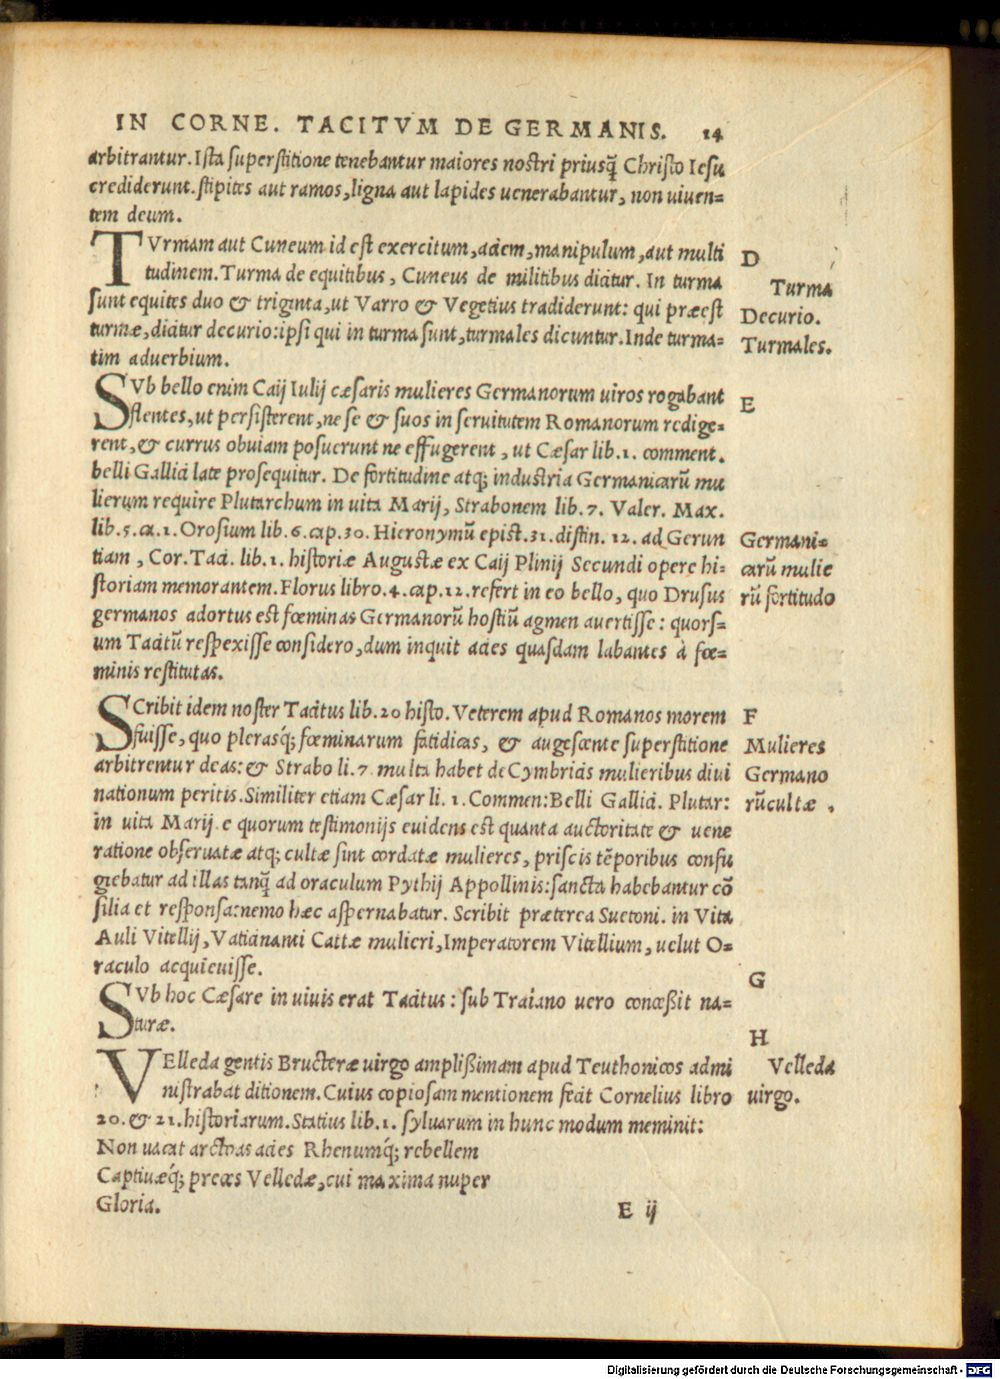 IN CORNE. TACITVM DE GERMANIS. 14
arbitrantur. Ista superstitione tenebantur maiores nostri priusq̃ Christo Iesu
crediderunt. stipites aut ramos, ligna aut lapides uenerabantur, non uiuen=
tem deum.
TVrmam aut Cuneum id est exercitum, aciem, manipulum, aut multi
tudinem. Turma de equitibus, Cuneus de militibus dicitur. In turma
sunt equites duo & triginta, ut Varro & Vegetius tradiderunt: qui præest
turmæ, dicitur decurio: ipsi qui in turma sunt, turmales dicuntur. Inde turma=
tim aduerbium.
D
Turma
Decurio.
Turmales.
SVb bello enim Caij Iulij cæsaris mulieres Germanorum uiros rogabant
flentes, ut persisterent, ne se & suos in seruitutem Romanorum redige=
rent, & currus obuiam posuerunt ne effugerent, ut Cæsar lib. 1. comment.
belli Gallici late prosequitur. De fortitudine atq; industria Germanicarũ mu
lierum require Plutarchum in uita Marij, Strabonem lib. 7. Valer. Max.
lib. 5. ca. 1. Orosium lib. 6. cap. 30. Hieronymũ epist. 31. distin. 12. ad Gerun
tiam, Cor. Taci. lib. 1. historiæ Augustæ ex Caij Plinij Secundi opere hi=
storiam memorantem. Florus libro. 4. cap. 12. refert in eo bello, quo Drusus
germanos adortus est fœminas Germanorũ hostiũ agmen auertisse: quors=
um Tacitũ respexisse considero, dum inquit acies quasdam labantes à fœ=
minis restitutas.
E
Germani=
carũ mulie
rũ fortitudo
SCribit idem noster Tacitus lib. 20 histo. Veterem apud Romanos morem
fuisse, quo plerasq́; fœminarum fatidicas, & augescente superstitione
arbitrentur deas: & Strabo li. 7 multa habet de Cymbricis mulieribus diui
nationum peritis. Similiter etiam Cæsar li. 1. Commen: Belli Gallici. Plutar:
in uita Marij e quorum testimonijs euidens est quanta auctoritate & uene
ratione obseruatæ atq; cultæ sint cordatæ mulieres, priscis tẽporibus confu
giebatur ad illas tanq̃ ad oraculum Pythij Appollinis: sancta habebantur cõ
silia et responsa: nemo hæc aspernabatur. Scribit præterea Suetoni. in Vita
Auli Vitellij, Vaticinanti Cattæ mulieri, Imperatorem Vitellium, uelut O=
raculo acquieuisse.
F
Mulieres
Germano
rũ cultæ.
G
SVb hoc Cæsare in uiuis erat Tacitus: sub Traiano uero concessit na=
turæ.
H
VElleda gentis Bructeræ uirgo amplissimam apud Teuthonicos admi
nistrabat ditionem. Cuius copiosam mentionem fecit Cornelius libro
20. & 21. historiarum. Statius lib. 1. syluarum in hunc modum meminit:
Non uacat arctoas acies Rhenumq́; rebellem
Captiuæq́; preces Velledæ, cui maxima nuper
Gloria.
Velleda
uirgo.
E ij
Digitalisierung gefördert durch die Deutsche Forschungsgemeinschaft - DFG